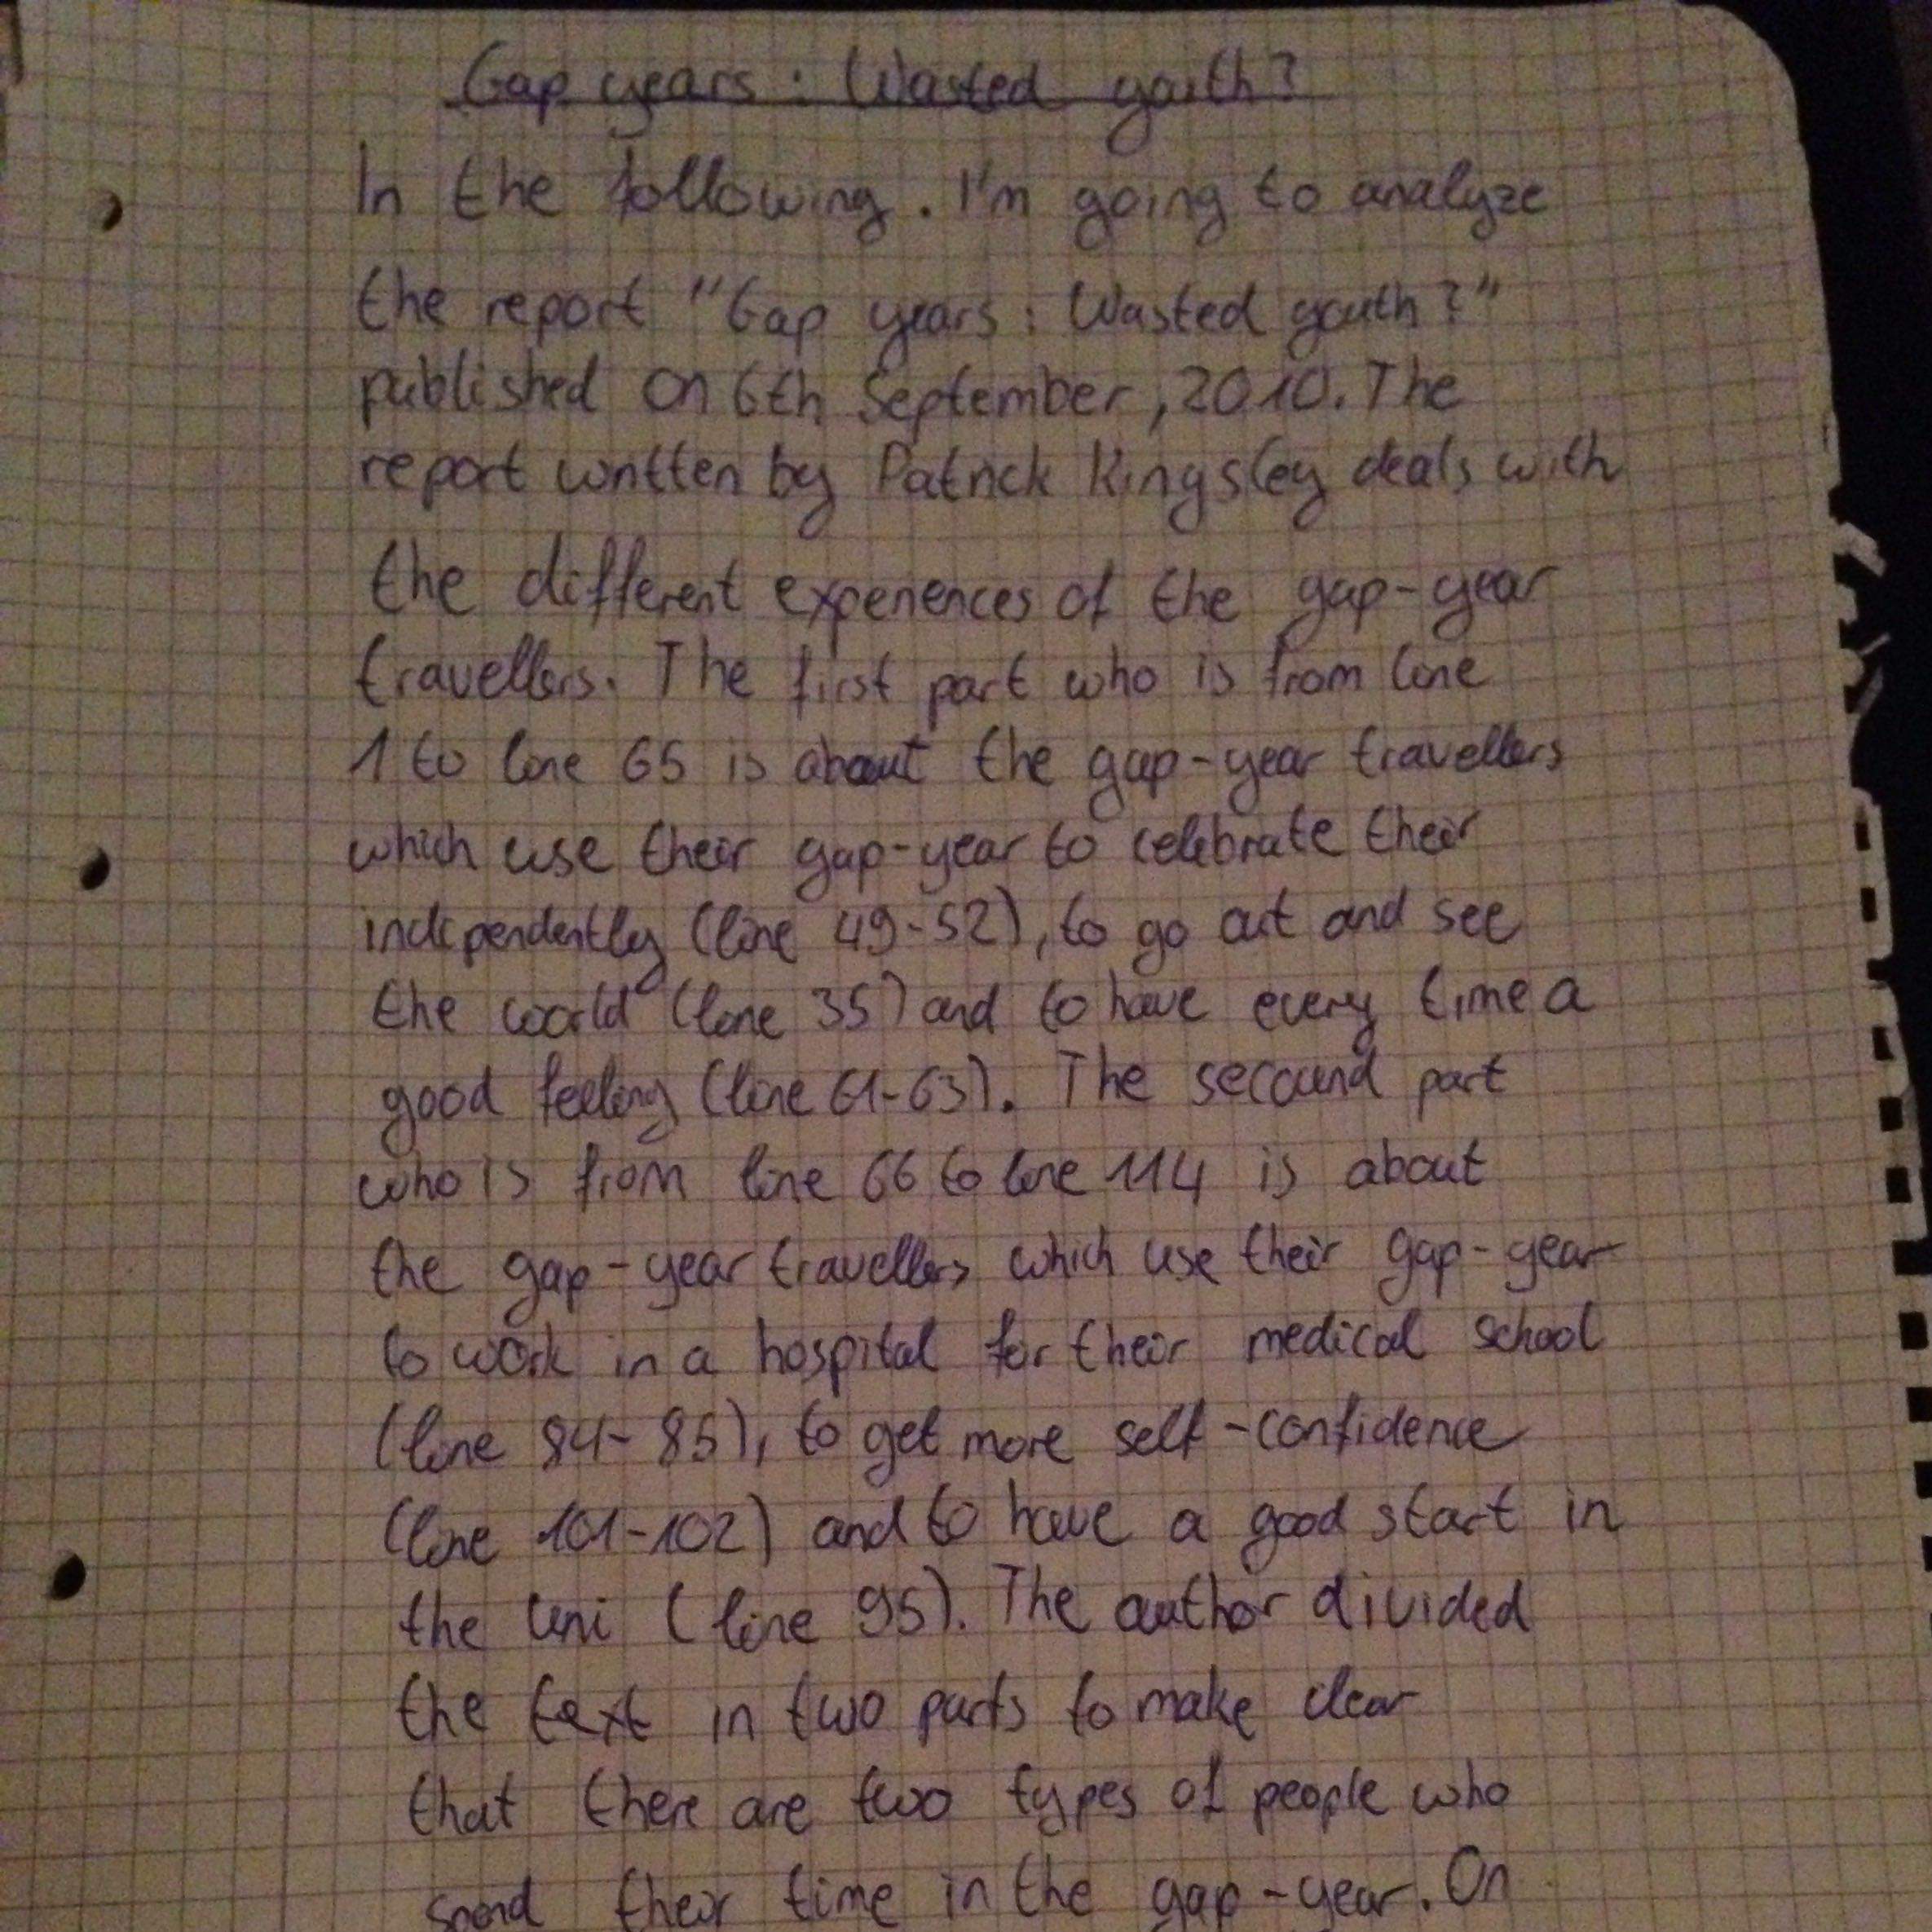 Gap years: Wasted youth?
In the following. I'm going to analyze
the report "Gap years: Wasted youth?"
published on 6th September, 2010. The
report written by Patrick Kingsley deals with
the different experiences of the gap-year
travellers. The first part who is from line
1 to line 65 is about the gap-year travellers
which use their gap-year to celebrate their
independently (line 49-52), to go out and see
the world (line 35) and to have every time a
good feeling (line 61-63). The secound part
who is from line 66 to line 114 is about
the gap-year travellers which use their gap-year
to work in a hospital for their medical school
(line 84-85), to get more self-confidence
(line 101-102) and to have a good start in
the uni (line 95). The author divided
the text in two parts to make clear
that there are two types of people who
spend their time in the gap-year. On